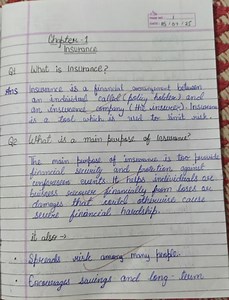 Chapter-1
Insurance
Q1 What is Insurance?
Ans Insurance is a financial arrangement between
an individual called (policy holder) and
an insurance company (the insurer). Insurance
is a tool which is used to limit risk.
Q2 What is a main purpose of Insurance?
The main purpose of insurance is too provide
financial security and protection against
events. It helps individuals and
business recover financially from losses or
damages that could otherwise cause
severe financial hardship.
it also →
• Spreads risk among many people.
• Encourages savings and long-term